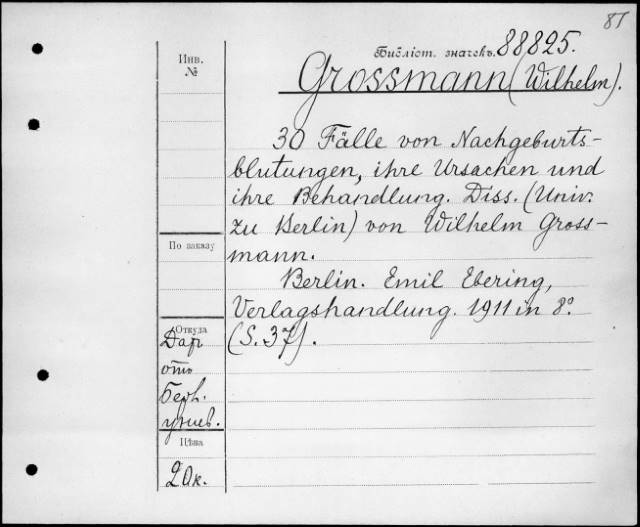 87
Инв.
№
Библіот. значекъ. 88825.
Grossmann (Wilhelm).
30 Fälle von Nachgeburts-
blutungen, ihre Ursachen und
ihre Behandlung. Diss. (Univ.
zu Berlin) von Wilhelm Gross-
mann.
Berlin. Emil Ebering,
Verlagshandlung. 1911 in 8°.
(S. 37).
По заказу
Откуда
Дар
отъ
Берл.
унив.
Цѣна
20к.